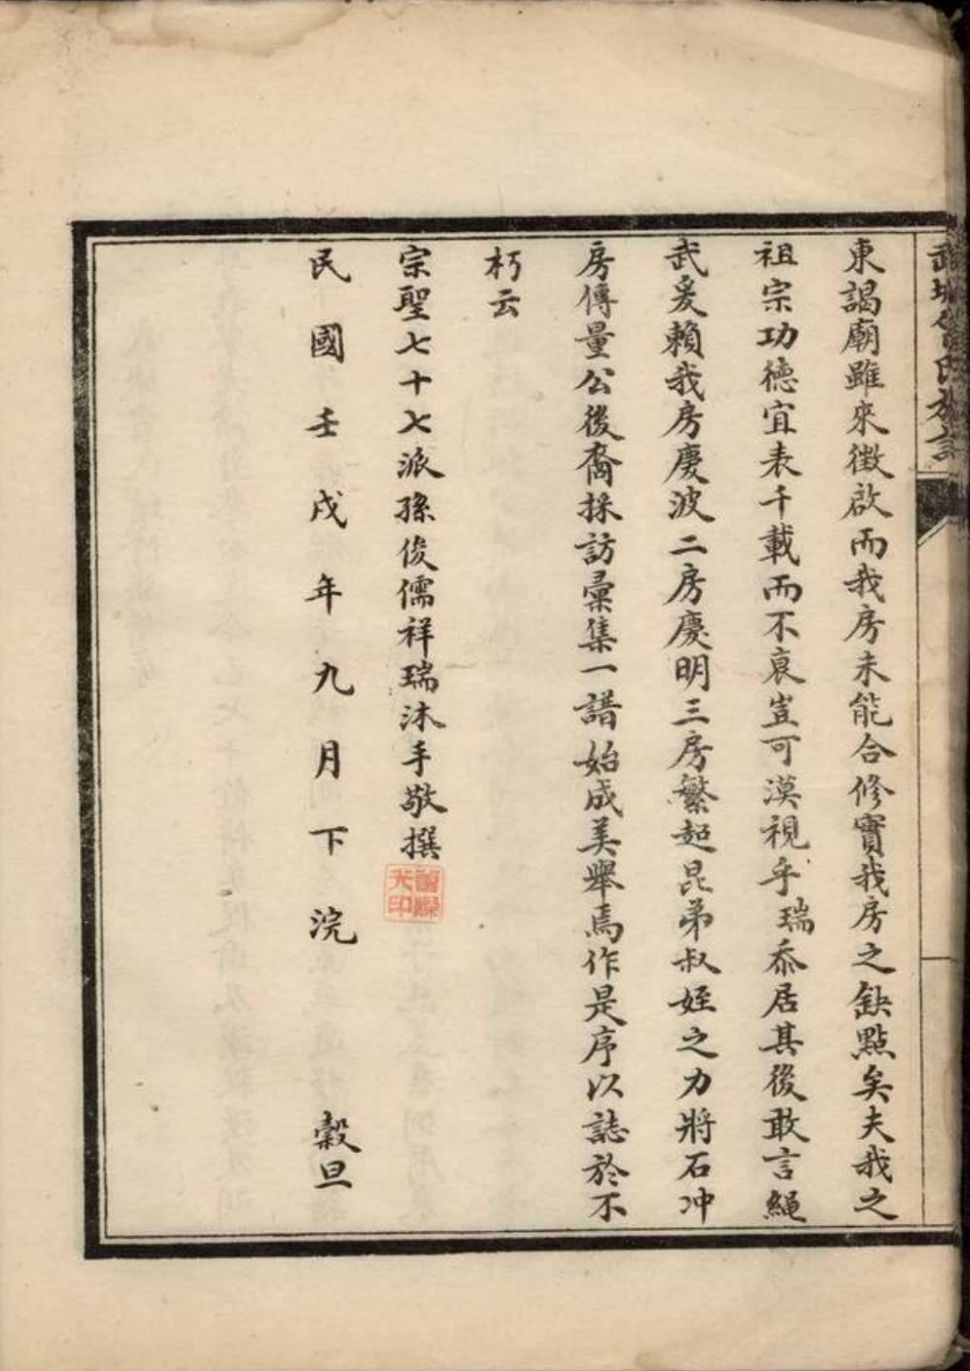 武城曾氏族譜
東謁廟雖來徵啟而我房未能合修實我房之缺點矣夫我之
祖宗功德宜表千載而不衰豈可漠視乎瑞忝居其後敢言繩
武爰賴我房慶波二房慶明三房繁超昆弟叔姪之力將石冲
房傳量公後裔採訪彙集一譜始成美舉焉作是序以誌於不
朽云
宗聖七十七派孫俊儒祥瑞沐手敬撰
民國壬戌年九月下浣 穀旦